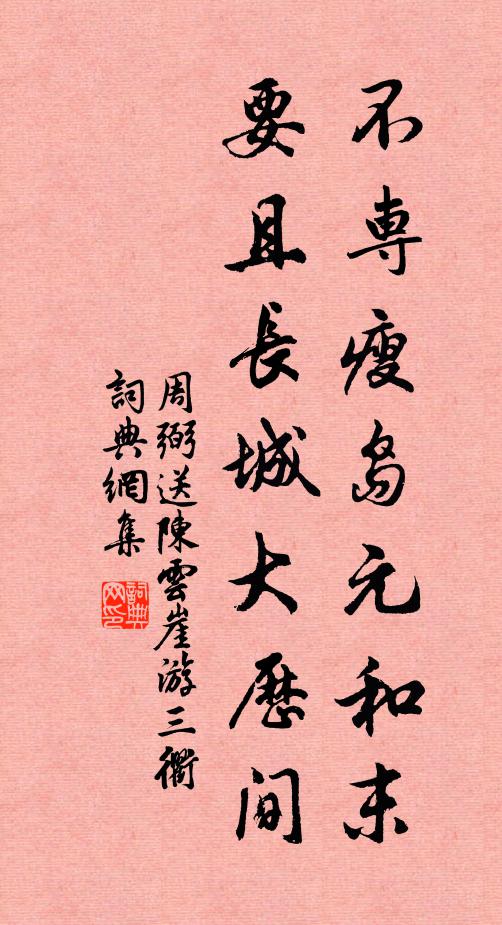 不専瘦岛元和末
要且長城大歷間
周弼送陳雲崖游三衢
詞典網集
詞典
网印